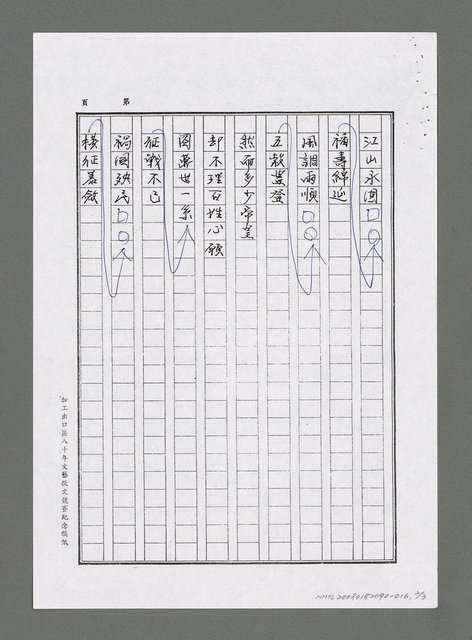 第　頁
江山永固
福壽綿延
風調雨順
五穀豐登
然而多少帝皇
却不理百姓心願
圖萬世一系
征戰不已
禍國殃民
橫征暴斂
加工出口區八十年文藝徵文競賽紀念稿紙
NMTL20080182090-016, 2/3